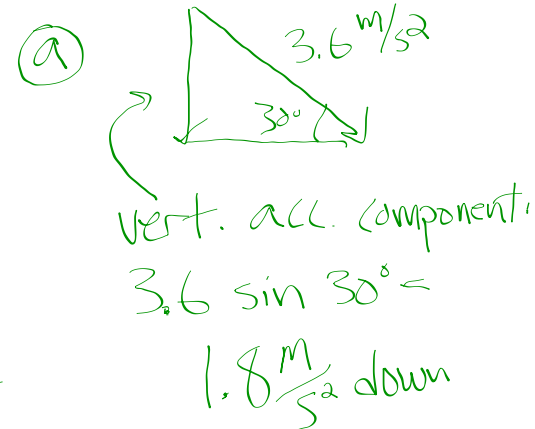 a
3.6 m/s²
30°
vert. acc. component.
3.6 sin 30° =
1.8 m/s² down